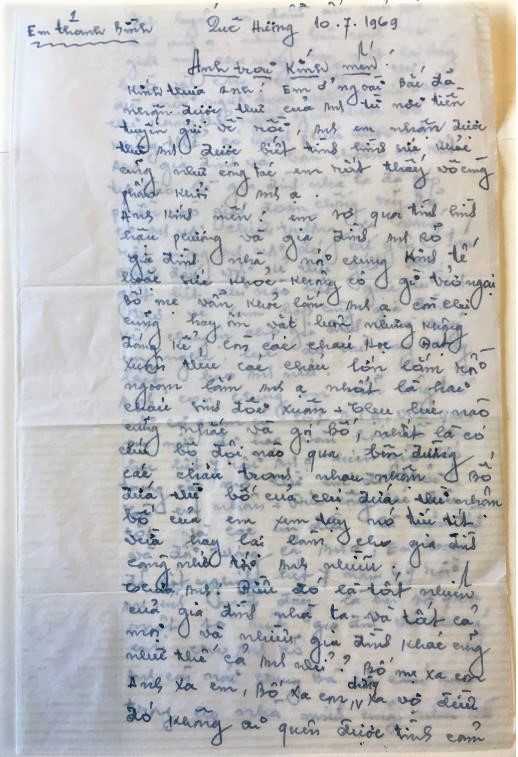 1
Em thanh Bình Quê Hương 10.7.1969
Anh trai Kính mến!
Kính thưa Anh! Em ở ngoài Bắc đã
nhận được thư của anh từ nơi tiền
tuyến gửi về rồi, anh em nhận được
thư anh được biết tình hình sức khỏe
cũng như công tác em rất thấy vô cùng
phấn khởi anh ạ.
Anh kính mến! em sơ qua tình hình
hậu phương và gia đình anh rõ
gia đình nhà, nói chung Kinh tế
hoặc sức khỏe không có gì trở ngại
bố mẹ vẫn khỏe lắm anh ạ còn chị
cũng hay ốm vặt luôn nhưng không
đáng kể, còn các cháu Học
Xuân thêu các cháu lớn lắm rồi
ngoan lắm anh ạ nhất là hai
cháu Xuân + thêu lúc nào
cũng nhắc và gọi Bố, nhất là có
chú bộ đội nào qua bình đứng
các cháu tranh nhau nhận Bố
đứa thì bố của chị đứa thì nhận
bố của em xem
vừa hay lại làm cho gia đình
càng nhớ tới anh nhiều.
thưa anh. Điều đó là tất nhiên
của gia đình nhà ta và tất cả
mọi và nhiều gia đình khác cũng
như thế cả anh nhỉ? Bố mẹ xa con
Anh xa em, Bố xa con, xa vợ điều
đó không ai quên được tình cảm